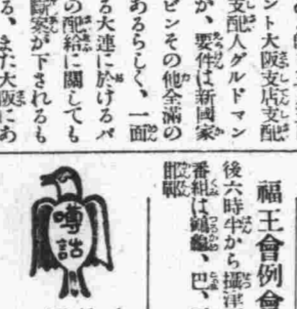 ント大阪支店支配
支配人グルドマン
が、要件は新國家
ビンその他全滿の
あるらしく、一面
る大連に於けるパ
の配給に關しても
斷案が下されるも
る、また大阪にあ
福王會例會
後六時半から攝津
番組は鶴龜、巴、
邯鄲
噂話